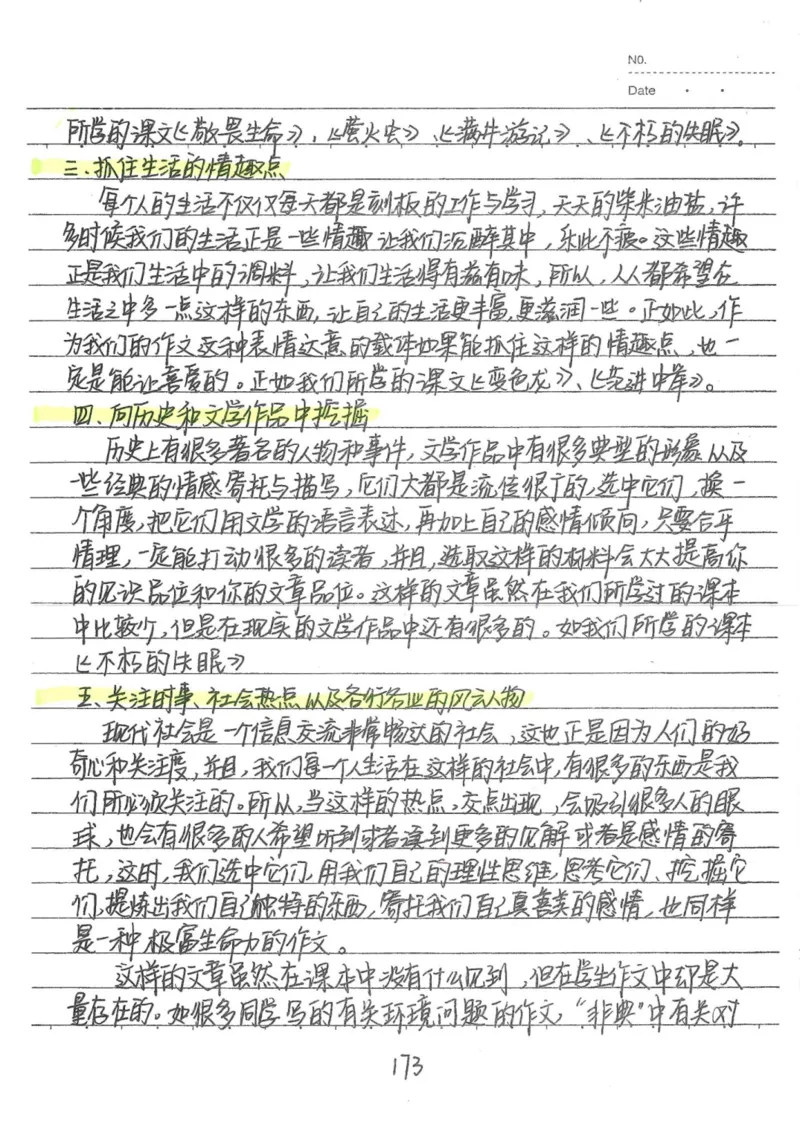 NO.
Date
所学的课文《敬畏生命》,《萤火虫》《满井游记》、《不朽的失眠》。
三、抓住生活的情趣点
每个人的生活不仅仅每天都是刻板的工作与学习,天天的柴米油盐,许
多时候我们的生活正是一些情趣让我们沉醉其中,乐此不疲。这些情趣
正是我们生活中的调料,让我们生活得有滋有味,所以,人人都希望在
生活之中多一点这样的东西,让自己的生活更丰富,更滋润一些。正如此,作
为我们的作文这种表情达意的载体如果能抓住这样的情趣点,也一
定是能让喜爱的。正如我们所学的课文《变色龙》、《范进中举》。
四、向历史和文学作品中挖掘
历史上有很多著名的人物和事件,文学作品中有很多典型的形象以及
一些经典的情感寄托与描写,它们大都是流传很广的,选中它们,换一
个角度,把它们用文学的语言表述,再加上自己的感情倾向,只要合乎
情理,一定能打动很多的读者,并且,选取这样的材料会大大提高你
的见识品位和你的文章品位。这样的文章虽然在我们所学过的课本
中比较少,但是在现实的文学作品中还有很多的。如我们所学的课本
《不朽的失眠》
五、关注时事、社会热点以及各行各业的风云人物
现代社会是一个信息交流非常畅达的社会,这也正是因为人们的好
奇心和关注度,并且,我们每一个人生活在这样的社会中,有很多的东西是我
们所必须关注的。所以,当这样的热点,交点出现,会吸引很多人的眼
球,也会有很多的人希望听到或者读到更多的见解或者是感情的寄
托,这时,我们选中它们,用我们自己的理性思维,思考它们、挖掘它
们,提炼出我们自己独特的东西,寄托我们自己真善美的感情,也同样
是一种极富生命力的作文。
这样的文章虽然在课本中没有什么见到,但在学生作文中却是大
量存在的。如很多同学写的有关环境问题的作文,“非典”中有关对
173